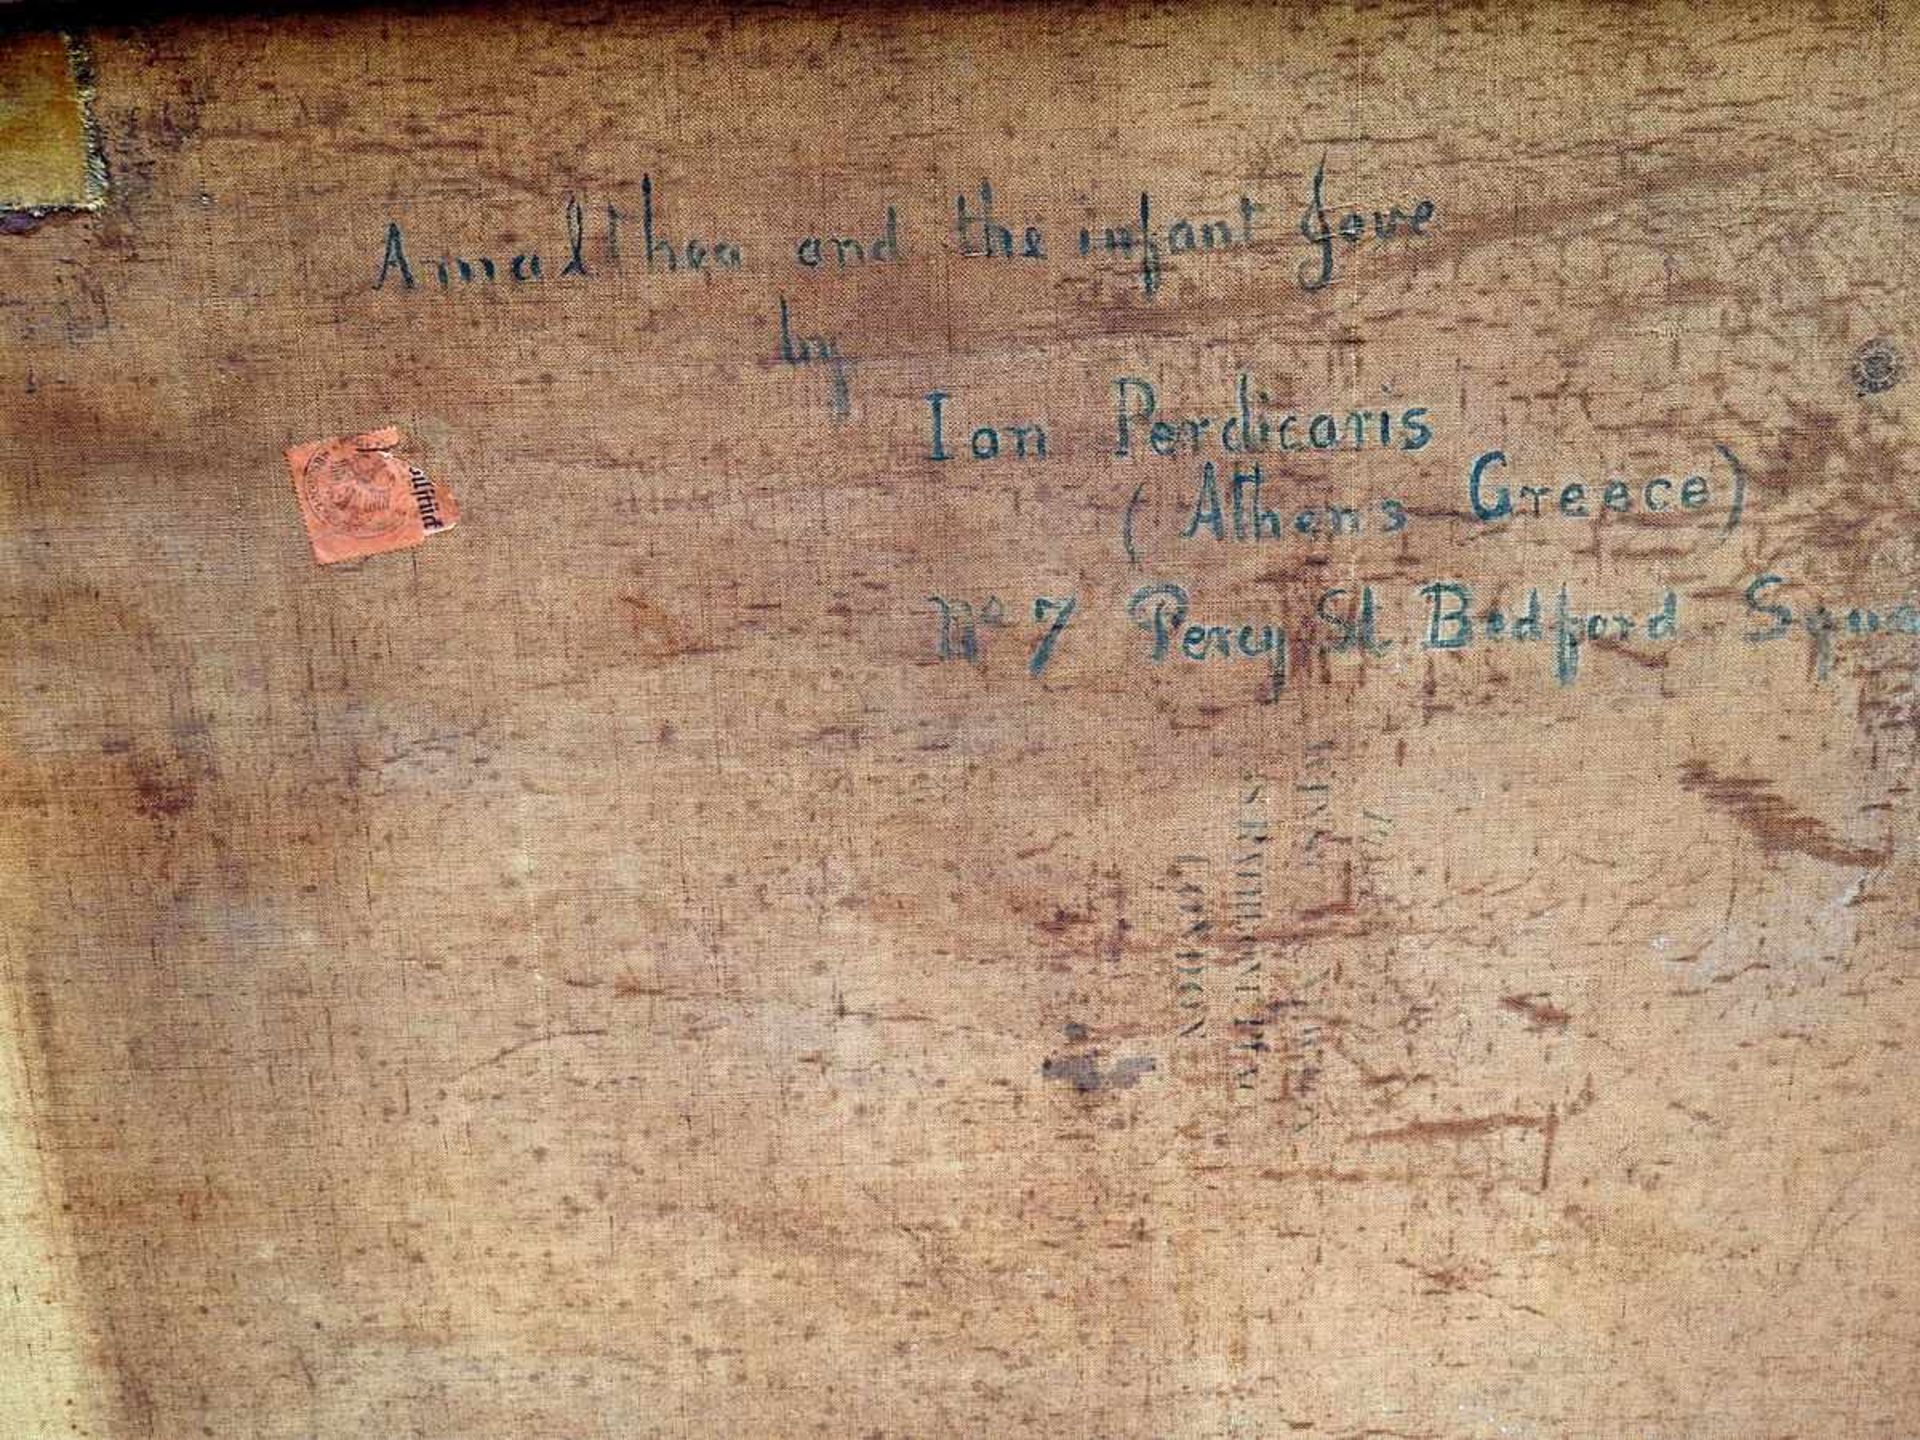 Amalthea and the infant Jove
by
Ion Perdicaris
(Athens Greece)
No 7 Percy St Bedford Squa
LONDON